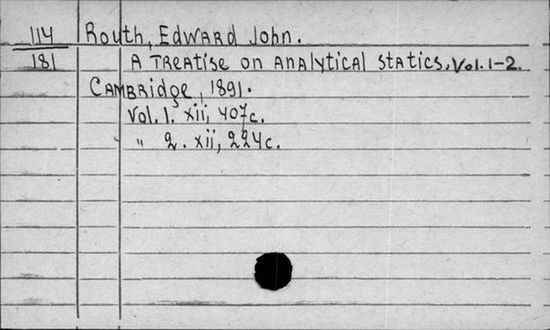 114 Routh, Edward John.
181 A Treatise on analytical statics. Vol. 1-2.
Cambridge, 1891.
Vol. 1. xii, 407c.
" 2. xii, 224c.